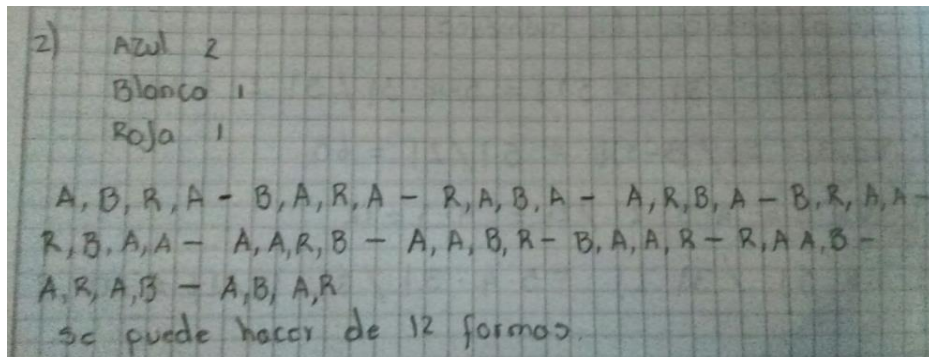 2) Azul 2
Blanco 1
Roja 1
A, B, R, A - B, A, R, A - R, A, B, A - A, R, B, A - B, R, A, A -
R, B, A, A - A, A, R, B - A, A, B, R - B, A, A, R - R, A A, B -
A, R, A, B - A, B, A, R
se puede hacer de 12 formas.